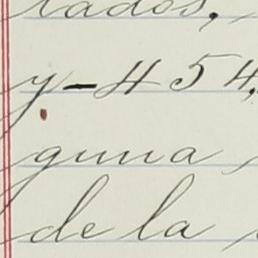 tados,
y-454,
guna
de la